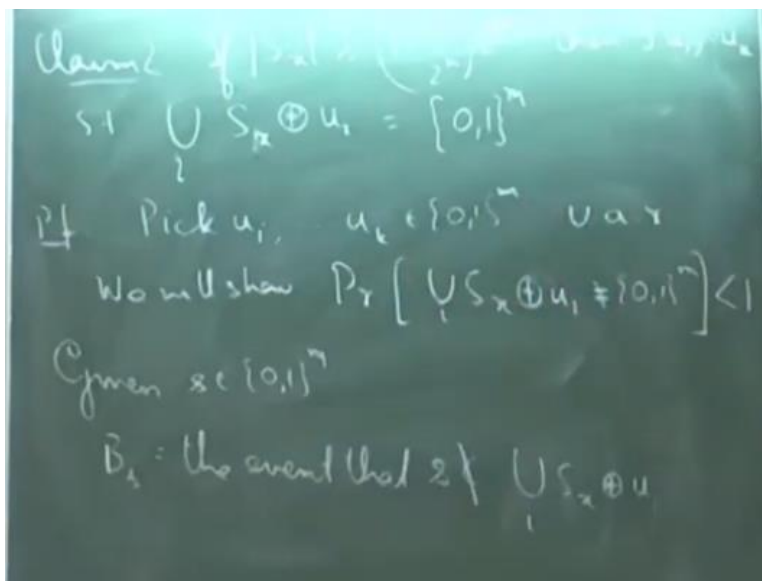 Claim 2 if |Sₓ| ≥ ( 2ⁿ ) u₁, uₖ
st ⋃ᵢ Sₓ ⊕ uᵢ = {0,1}ᵐ
Pf Pick uᵢ, uₖ ∈ {0,1}ᵐ u a r
We will show Pr [ ⋃ᵢ Sₓ ⊕ uᵢ ≠ {0,1}ᵐ ] < 1
Given s ∈ {0,1}ᵐ
Bₛ = the event that ⋃ᵢ Sₓ ⊕ u